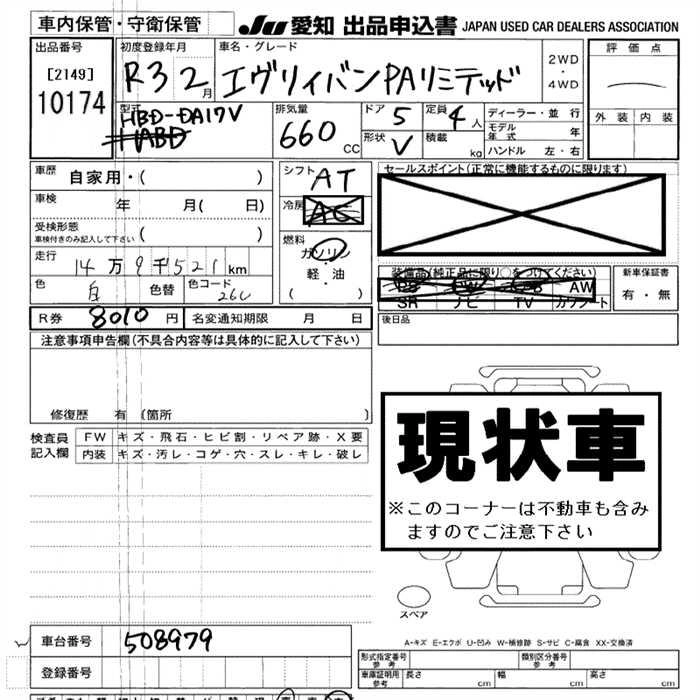 車内保管・守衛保管
JU 愛知 出品申込書 JAPAN USED CAR DEALERS ASSOCIATION
出品番号
[2149]
10174
初度登録年月
R3 2月
車名・グレード
エヴリィバンPAリミテッド
2WD
・
4WD
評価点
外装 内装
型式
HBD-DA17V
排気量
660 CC
ドア 5
定員 4人
形状 V
積載 kg
ディーラー・並行
モデル年式 年
ハンドル 左・右
車歴 自家用・( )
車検 年 月( 日)
受検形態
車検付きのみ記入して下さい ( )
走行
14万9千521km
色 白 色替 色コード 26U
シフト AT
冷房 AC
燃料
ガソリン
・
軽・油
( )
セールスポイント(正常に機能するものに限ります)
装備品(純正品に限り○をつけてください)
AW
SR ナビ TV カワシート
新車保証書
有・無
R券 8010円 名変通知期限 月 日
後日品
注意事項申告欄(不具合内容等は具体的に記入して下さい)
修復歴 有〔箇所 〕
検査員記入欄
FW キズ・飛石・ヒビ割・リペア跡・X要
内装 キズ・汚レ・コゲ・穴・スレ・キレ・破レ
現状車
※このコーナーは不動車も含み
ますのでご注意下さい
スペア
A-キズ E-エクボ U-凹み W-補修跡 S-サビ C-腐食 XX-交換済
車台番号 508979
登録番号
形式指定番号 参考
類別区分番号 参考
車庫証明用 参考 長さ cm 幅 cm 高さ cm